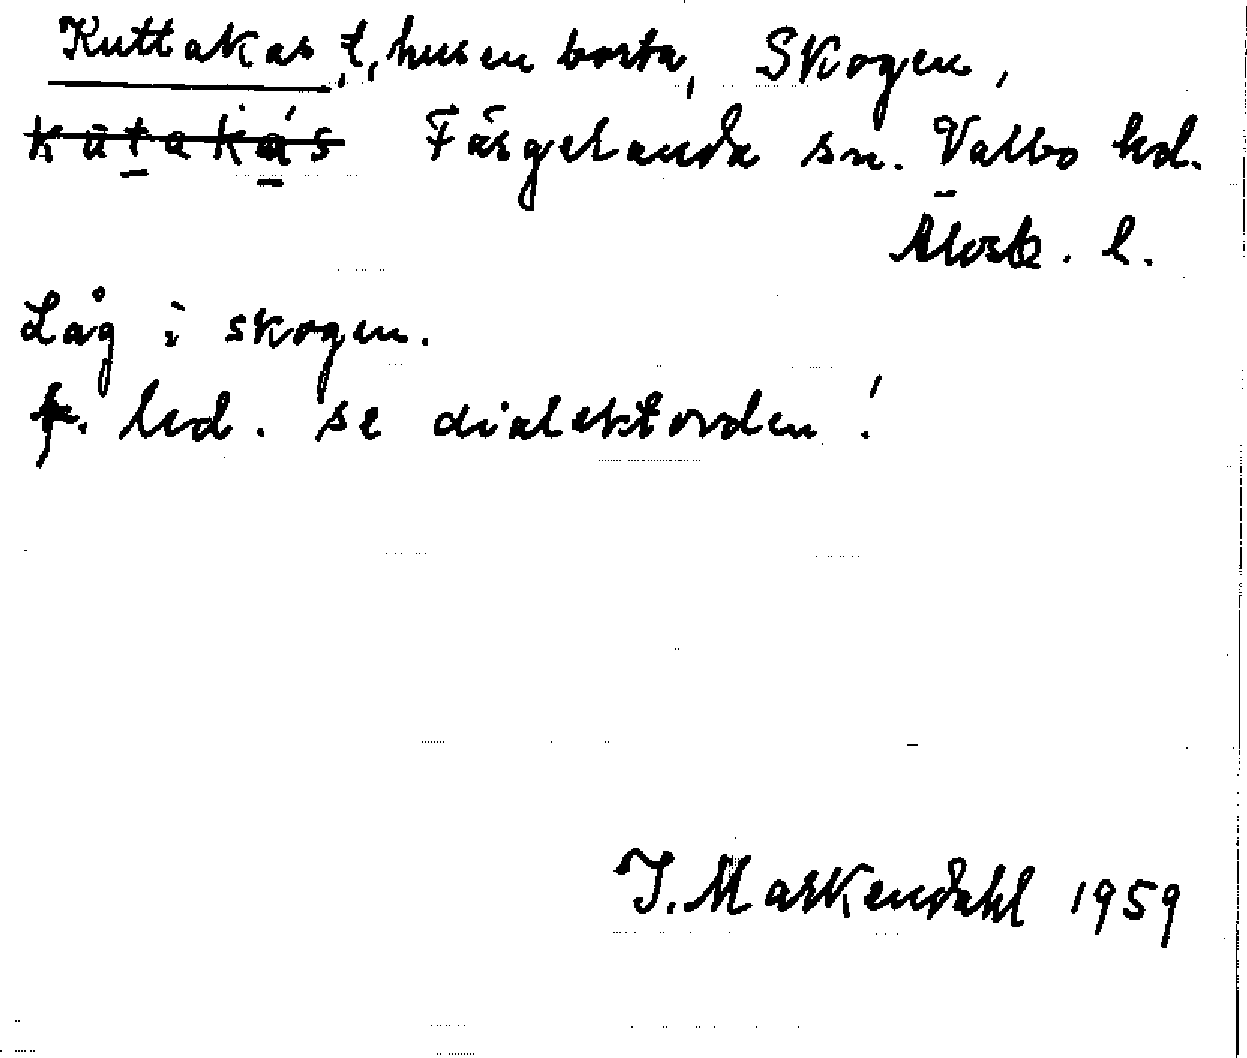 Kuttakas, t, husen borta, Skogen,
kutakás Färgelanda sn. Valbo hd.
Älvsb. l.
Låg i skogen.
f. led. se dialektorden!
J. Markendahl 1959